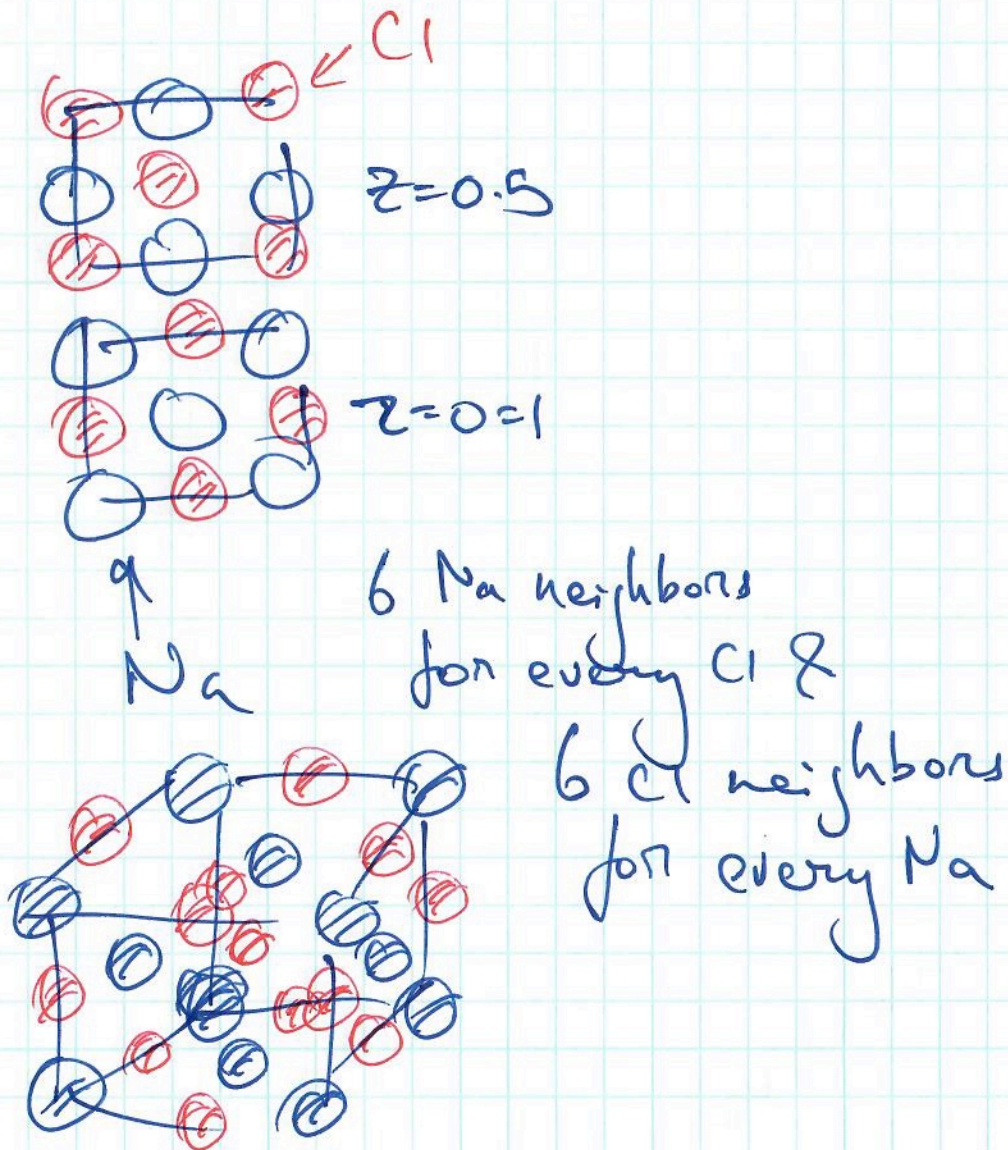 Cl
z=0.5
z=0=1
Na
6 Na neighbors
for every Cl &
6 Cl neighbors
for every Na